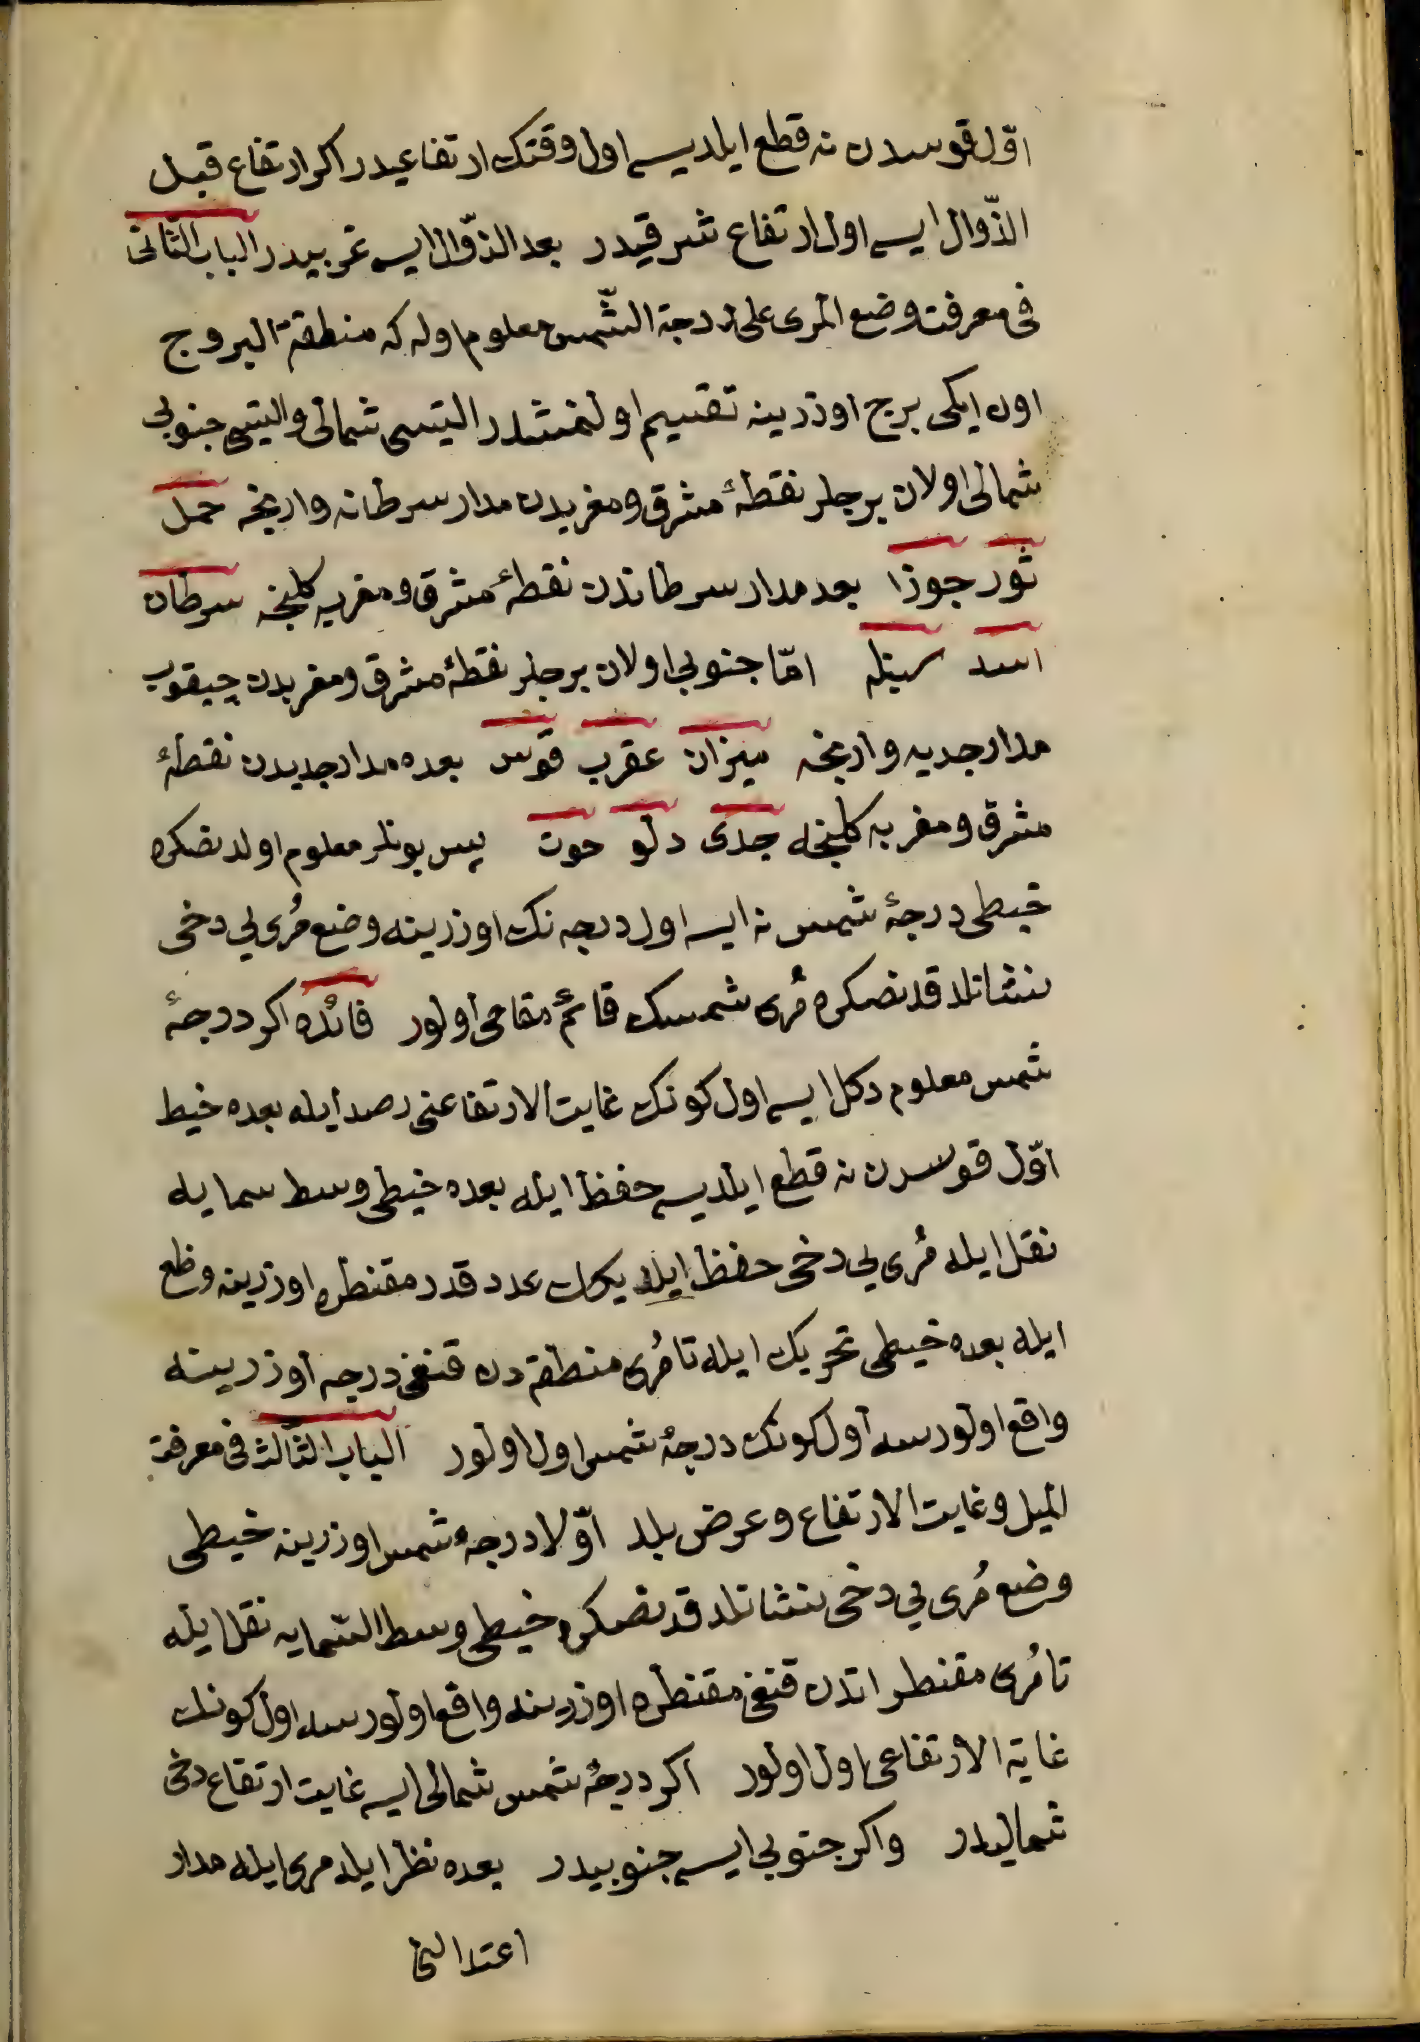 اوّل قوسدن نه قطع ایلدیسه اول وقتك ارتفاعیدر اكر ارتفاع قبل
الذّوال ایسه اول ارتفاع شرقیدر بعد الذّوال ایسه غربیدر الباب الثّانی
فی معرفت وضع المری علی درجة الشّمس معلوم اوله كه منطقة البروج
اون ایكی برج اوزرینه تقسیم اولنمشدر التیسی شمالی والتیسی جنوبی
شمالی اولان برجلر نقطهٔ مشرق ومغربدن مدار سرطانه وارنجه حمل
ثور جوزا بعد مدار سرطاندن نقطهٔ مشرق ومغربه كلنجه سرطان
اسد سنبله امّا جنوبی اولان برجلر نقطهٔ مشرق ومغربدن چیقوب
مدار جدیه وارنجه میزان عقرب قوس بعده مدار جدیدن نقطهٔ
مشرق ومغربه كلنجه جدی دلو حوت پس بونلر معلوم اولدقدنصكره
خیطی درجهٔ شمس نه ایسه اول درجه نك اوزرینه وضع مُری یی دخی
نشانلدقدنصكره مُری شمسك قائم مقامی اولور فائده اكر درجهٔ
شمس معلوم دكل ایسه اول كونك غایت الارتفاعنی رصد ایله بعده خیط
اوّل قوسدن نه قطع ایلدیسه حفظ ایله بعده خیطی وسط سمایه
نقل ایله مُری یی دخی حفظ ایله یكك عدد قدر مقنطره اوزرینه وظع
ایله بعده خیطی تحریك ایله تا مُری منطقه دن قنغی درجه اوزرینه
واقع اولورسه اول كونك درجهٔ شمس اول اولور الباب الثّالث فی معرفة
المیل وغایت الارتفاع وعرض بلد اوّلا درجهٔ شمس اوزرینه خیطی
وضع مُری یی دخی نشانلدقدنصكره خیطی وسط السّمایه نقل ایله
تا مُری مقنطراتدن قنغی مقنطره اوزرینه واقع اولورسه اول كونك
غایة الارتفاعی اول اولور اكر درجهٔ شمس شمالی ایسه غایت ارتفاع دخی
شمالیدر واكر جنوبی ایسه جنوبیدر بعده نظر ایله مری ایله مدار
اعتدالك